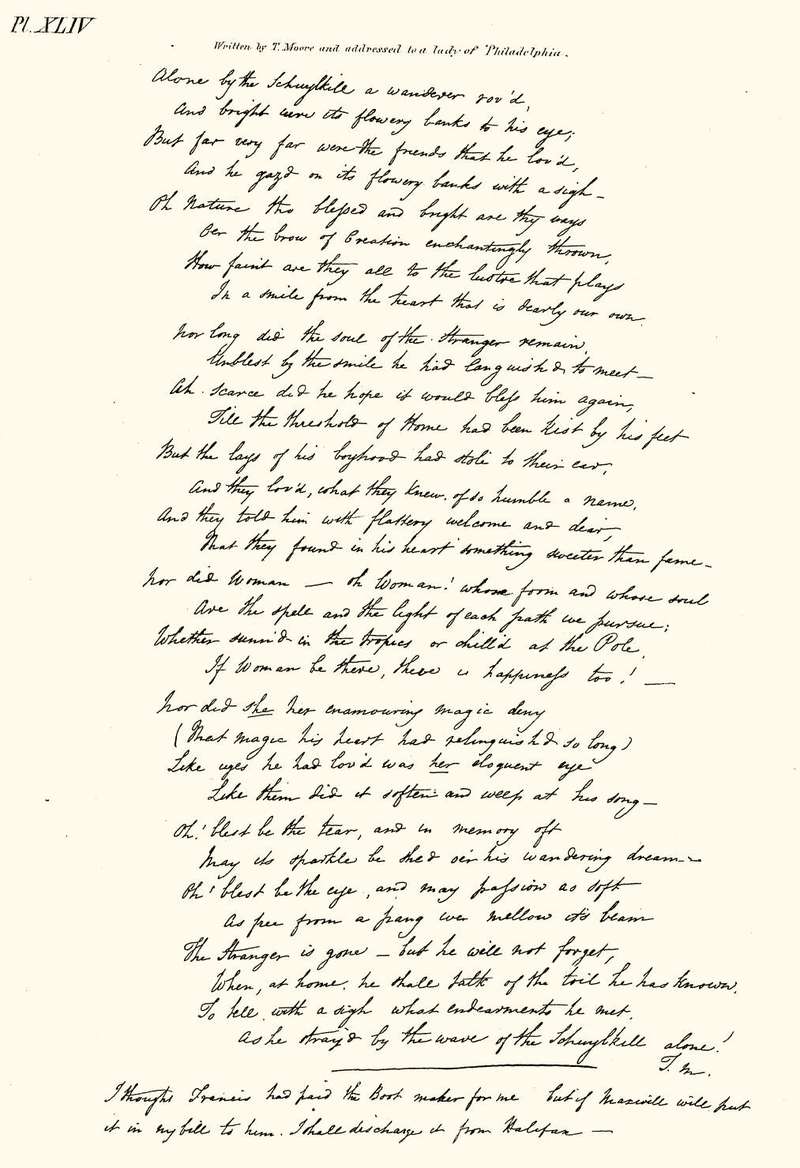 Pl. XLIV
Written by T. Moore and addressed to a lady of Philadelphia.
Alone by the Schuylkill a wanderer rov'd,
And bright were its flowery banks to his eye;
But far very far were the friends that he lov'd,
And he gaz'd on its flowery banks with a sigh—
Oh Nature tho blessed and bright are thy rays
Oer the brow of Creation enchantingly thrown,
How faint are they all to the lustre that plays
In a smile from the heart that is dearly our own.
Nor long did the soul of the Stranger remain
Unblest by the smile he had languish'd to meet—
Ah scarce did he hope it would bless him again,
Till the threshold of Home had been kist by his feet
But the lays of his boyhood had stole to their ear,
And they lov'd, what they knew, of so humble a name,
And they told him with flattery welcome and dear,
That they found in his heart something sweeter than fame—
Nor did Woman — oh Woman! whose form and whose soul
Are the spell and the light of each path we pursue;
Whether sunn'd in the tropics or chill'd at the Pole,
If Woman be there, there is happiness too! —
Nor did she her enamouring magic deny
(That magic his heart had relinquish'd so long)
Like eyes he had lov'd was her eloquent eye
Like them did it soften and weep at his song—
Oh! blest be the tear, and in memory oft
May its sparkle be shed o'er his wandering dream—
Oh! blest be the eye, and may passion as soft
As free from a pang ever mellow its beam
The Stranger is gone — but he will not forget,
When, at home, he shall talk of the toil he has known,
To tell, with a sigh what endearments he met,
As he stray'd by the wave of the Schuylkill alone!
T. M.
I thought Francis had paid the Boot maker for me but if Maxwell will put
it in my bill to him. I shall discharge it from Halifax —